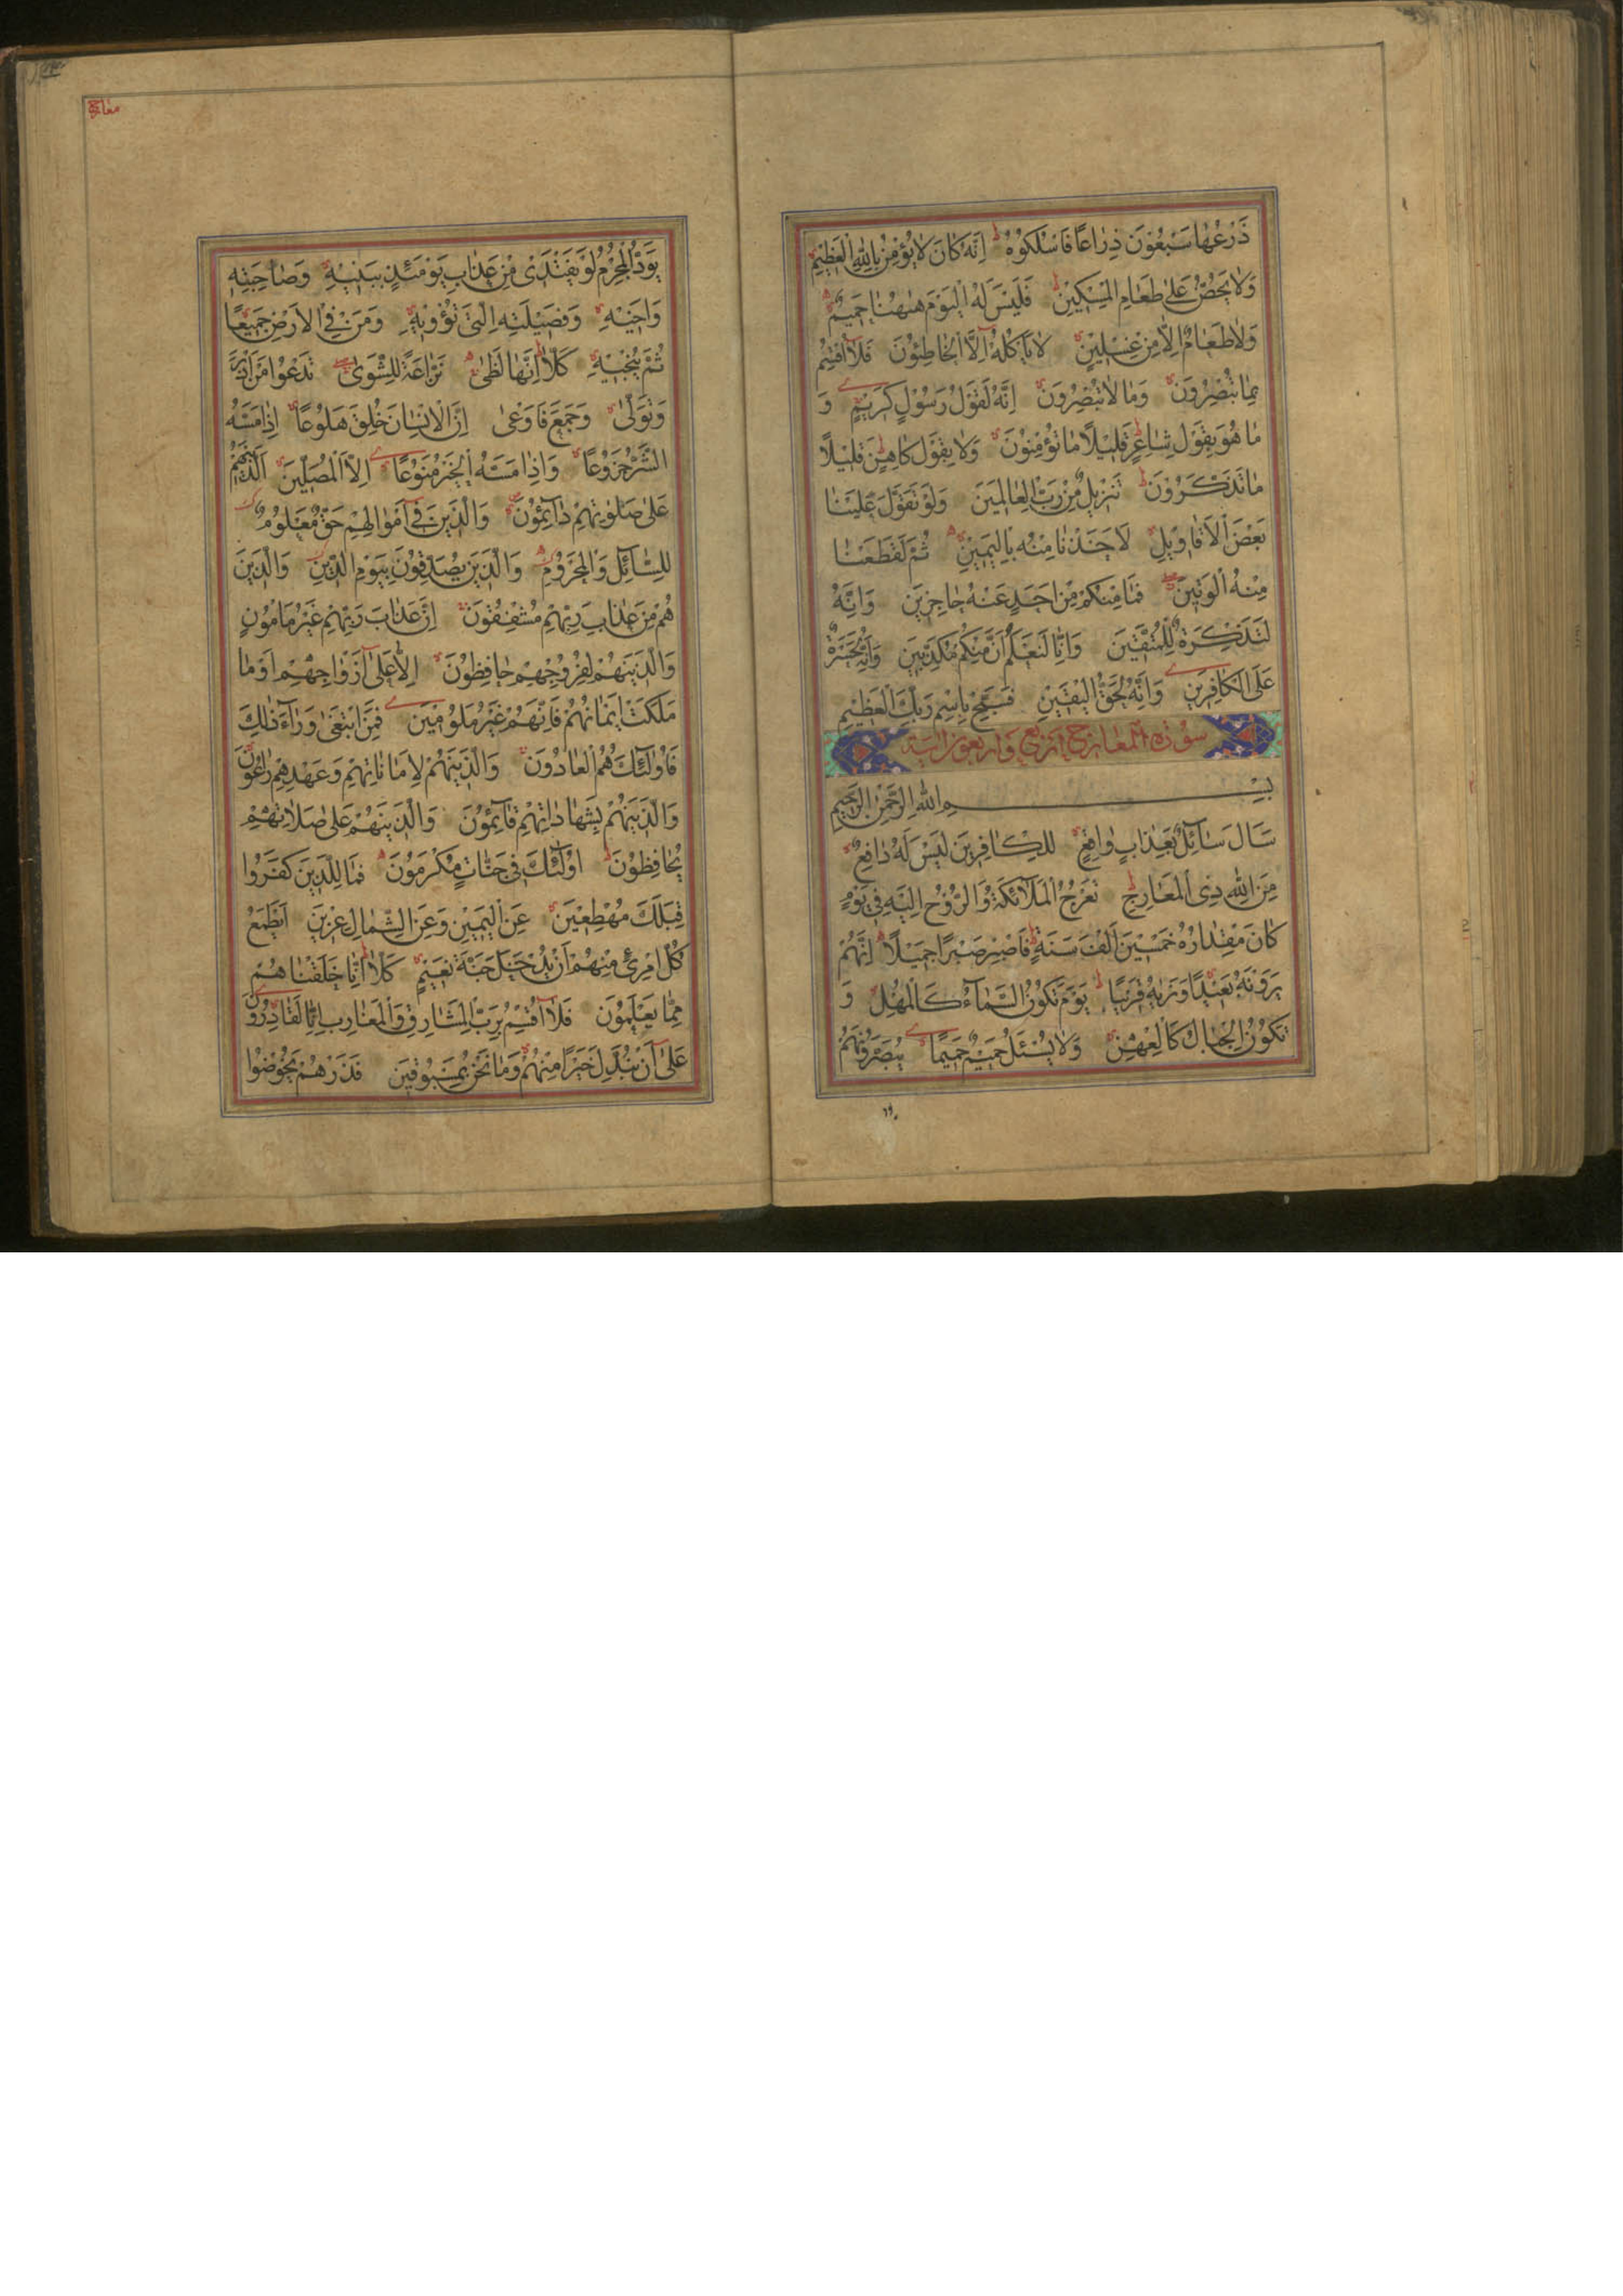 ذَرْعُهٰا سَبْعُونَ ذِرٰاعًا فَاسْلُكُوهُ اِنَّهُ كٰانَ لاٰ يُؤْمِنُ بِاللّٰهِ الْعَظٖيمِ
وَلاٰ يَحُضُّ عَلىٰ طَعٰامِ الْمِسْكٖينِ فَلَيْسَ لَهُ الْيَوْمَ هٰهُنٰا حَمٖيمٌ
وَلاٰ طَعٰامٌ اِلاّٰ مِنْ غِسْلٖينٍ لاٰ يَأْكُلُهُ اِلَّا الْخٰاطِئُونَ فَلاٰ اُقْسِمُ
بِمٰا تُبْصِرُونَ وَمٰا لاٰ تُبْصِرُونَ اِنَّهُ لَقَوْلُ رَسُولٍ كَرٖيمٍ وَ
مٰا هُوَ بِقَوْلِ شٰاعِرٍ قَلٖيلاً مٰا تُؤْمِنُونَ وَلاٰ بِقَوْلِ كٰاهِنٍ قَلٖيلاً
مٰا تَذَكَّرُونَ تَنْزٖيلٌ مِنْ رَبِّ الْعٰالَمٖينَ وَلَوْ تَقَوَّلَ عَلَيْنٰا
بَعْضَ الْاَقٰاوٖيلِ لَاَخَذْنٰا مِنْهُ بِالْيَمٖينِ ثُمَّ لَقَطَعْنٰا
مِنْهُ الْوَتٖينَ فَمٰا مِنْكُمْ مِنْ اَحَدٍ عَنْهُ حٰاجِزٖينَ وَاِنَّهُ
لَتَذْكِرَةٌ لِلْمُتَّقٖينَ وَاِنّٰا لَنَعْلَمُ اَنَّ مِنْكُمْ مُكَذِّبٖينَ وَاِنَّهُ لَحَسْرَةٌ
عَلَى الْكٰافِرٖينَ وَاِنَّهُ لَحَقُّ الْيَقٖينِ فَسَبِّحْ بِاسْمِ رَبِّكَ الْعَظٖيمِ
سُورَة المعٰارج اربع وَاربعون ايَة
بِسْمِ اللّٰهِ الرَّحْمٰنِ الرَّحٖيمِ
سَاَلَ سٰائِلٌ بِعَذٰابٍ وٰاقِعٍ لِلْكٰافِرٖينَ لَيْسَ لَهُ دٰافِعٌ
مِنَ اللّٰهِ ذِى الْمَعٰارِجِ تَعْرُجُ الْمَلاٰئِكَةُ وَالرُّوحُ اِلَيْهِ فٖى يَوْمٍ
كٰانَ مِقْدٰارُهُ خَمْسٖينَ اَلْفَ سَنَةٍ فَاصْبِرْ صَبْرًا جَمٖيلاً اِنَّهُمْ
يَرَوْنَهُ بَعٖيدًا وَنَرٰيهُ قَرٖيبًا يَوْمَ تَكُونُ السَّمٰاءُ كَالْمُهْلِ وَ
تَكُونُ الْجِبٰالُ كَالْعِهْنِ وَلاٰ يَسْئَلُ حَمٖيمٌ حَمٖيمًا يُبَصَّرُونَهُمْ
معارج
يَوَدُّ الْمُجْرِمُ لَوْ يَفْتَدٖى مِنْ عَذٰابِ يَوْمَئِذٍ بِبَنٖيهِ وَصٰاحِبَتِهِ
وَاَخٖيهِ وَفَصٖيلَتِهِ الَّتٖى تُؤْوٖيهِ وَمَنْ فِى الْاَرْضِ جَمٖيعًا
ثُمَّ يُنْجٖيهِ كَلاّٰ اِنَّهٰا لَظىٰ نَزّٰاعَةً لِلشَّوىٰ تَدْعُوا مَنْ اَدْبَرَ
وَتَوَلّىٰ وَجَمَعَ فَاَوْعىٰ اِنَّ الْاِنْسٰانَ خُلِقَ هَلُوعًا اِذٰا مَسَّهُ
الشَّرُّ جَزُوعًا وَاِذٰا مَسَّهُ الْخَيْرُ مَنُوعًا اِلَّا الْمُصَلّٖينَ اَلَّذٖينَ هُمْ
عَلىٰ صَلوٰتِهِمْ دٰائِمُونَ وَالَّذٖينَ فٖى اَمْوٰالِهِمْ حَقٌّ مَعْلُومٌ
لِلسّٰائِلِ وَالْمَحْرُومِ وَالَّذٖينَ يُصَدِّقُونَ بِيَوْمِ الدّٖينِ وَالَّذٖينَ
هُمْ مِنْ عَذٰابِ رَبِّهِمْ مُشْفِقُونَ اِنَّ عَذٰابَ رَبِّهِمْ غَيْرُ مَأْمُونٍ
وَالَّذٖينَ هُمْ لِفُرُوجِهِمْ حٰافِظُونَ اِلاّٰ عَلىٰ اَزْوٰاجِهِمْ اَوْ مٰا
مَلَكَتْ اَيْمٰانُهُمْ فَاِنَّهُمْ غَيْرُ مَلُومٖينَ فَمَنِ ابْتَغىٰ وَرٰاءَ ذٰلِكَ
فَاُولٰئِكَ هُمُ الْعٰادُونَ وَالَّذٖينَ هُمْ لِاَمٰانٰاتِهِمْ وَعَهْدِهِمْ رٰاعُونَ
وَالَّذٖينَ هُمْ بِشَهٰادٰاتِهِمْ قٰائِمُونَ وَالَّذٖينَ هُمْ عَلىٰ صَلاٰتِهِمْ
يُحٰافِظُونَ اُولٰئِكَ فٖى جَنّٰاتٍ مُكْرَمُونَ فَمٰا لِلَّذٖينَ كَفَرُوا
قِبَلَكَ مُهْطِعٖينَ عَنِ الْيَمٖينِ وَعَنِ الشِّمٰالِ عِزٖينَ اَيَطْمَعُ
كُلُّ امْرِئٍ مِنْهُمْ اَنْ يُدْخَلَ جَنَّةَ نَعٖيمٍ كَلاّٰ اِنّٰا خَلَقْنٰاهُمْ
مِمّٰا يَعْلَمُونَ فَلاٰ اُقْسِمُ بِرَبِّ الْمَشٰارِقِ وَالْمَغٰارِبِ اِنّٰا لَقٰادِرُونَ
عَلىٰ اَنْ نُبَدِّلَ خَيْرًا مِنْهُمْ وَمٰا نَحْنُ بِمَسْبُوقٖينَ فَذَرْهُمْ يَخُوضُوا